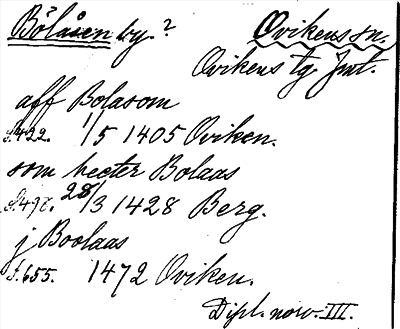 Bölåsen by.? Ovikens sn.
Ovikens tg. Jmt.
aff Bolasom
s.422. 1/5 1405 Oviken.
som heeter Bolaas
s.498. 28/3 1428 Berg.
j Boolaas
s.655. 1472 Oviken.
Dipl. norv. III.